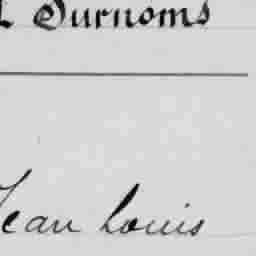 Surnoms
Jean Louis